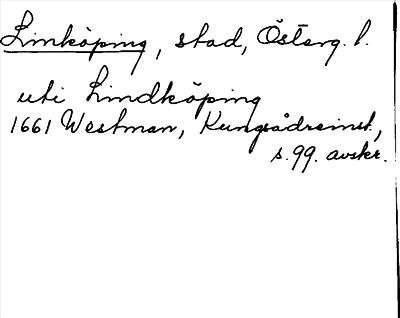 Linköping, stad, Österg. l.
uti Lindköping
1661 Westman, Kungsådreinst.,
s. 99. avskr.